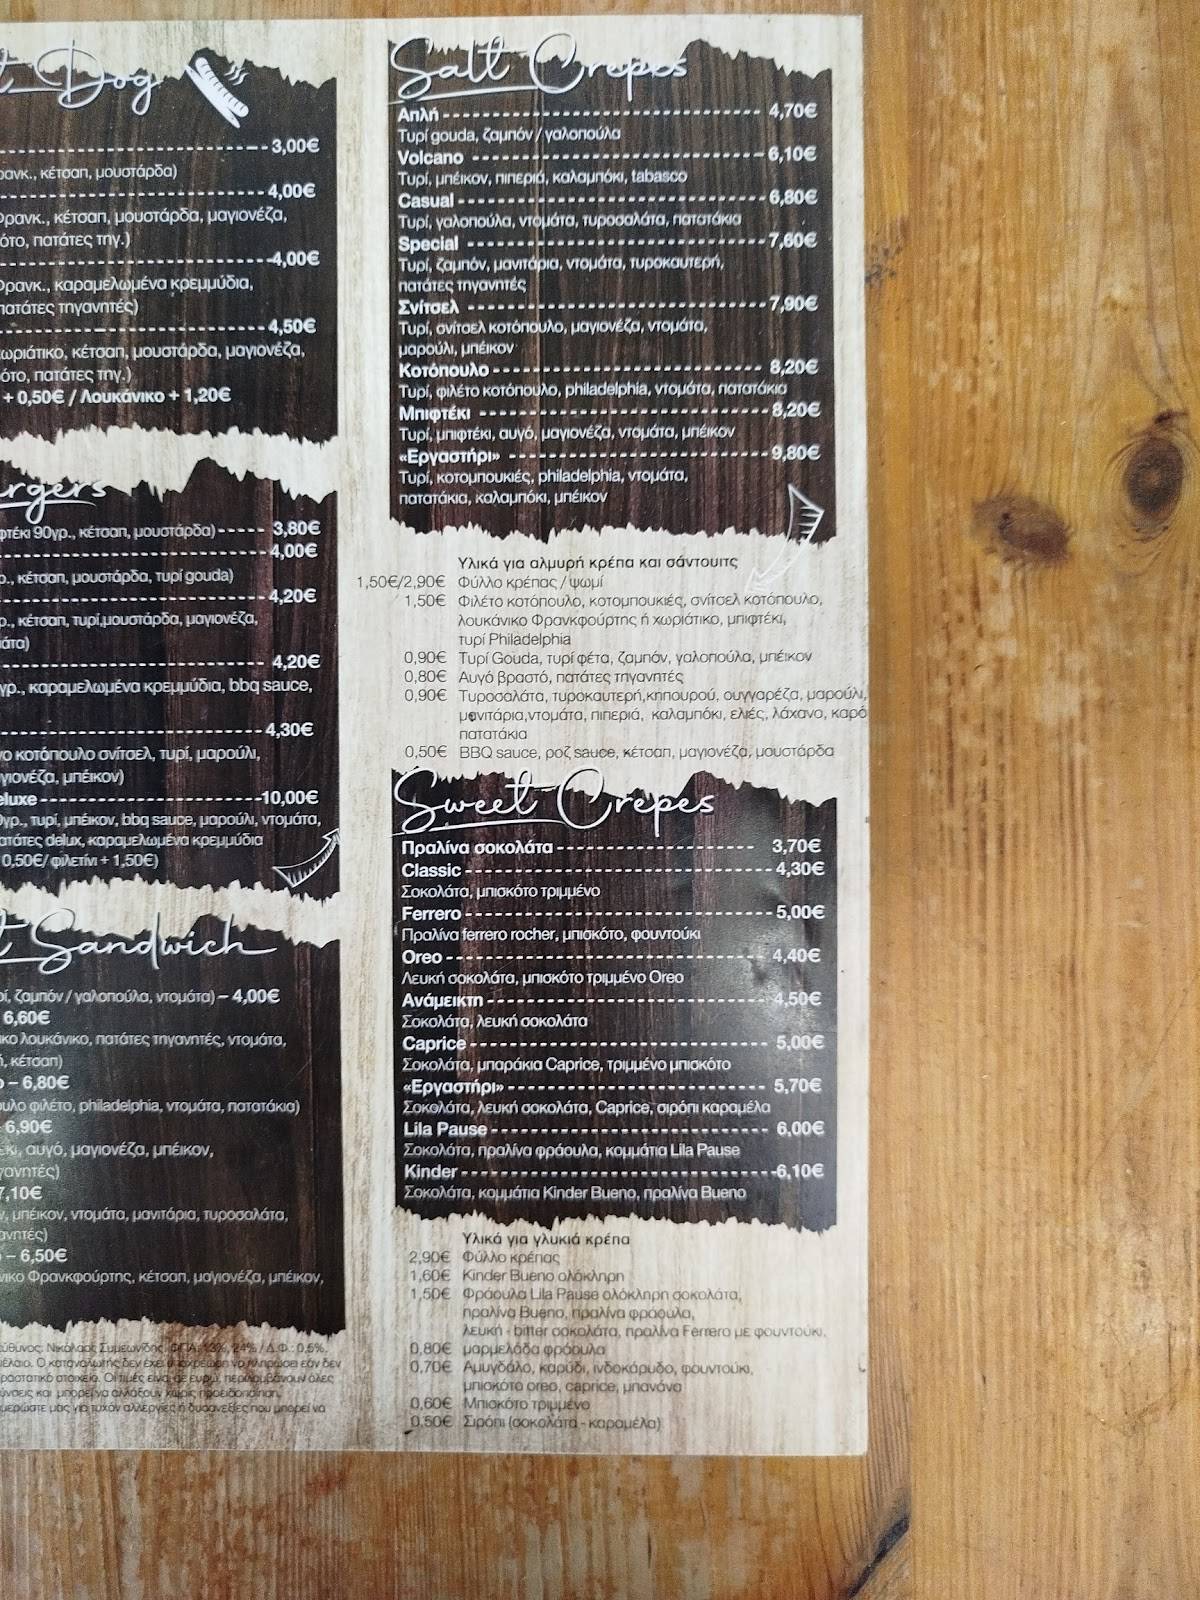 Dog
3,00€
κέτσαπ, μουστάρδα)
4,00€
Φρανκ., κέτσαπ, μουστάρδα, μαγιονέζα,
πατάτες τηγ.)
4,00€
Φρανκ., καραμελωμένα κρεμμύδια,
πατάτες τηγανητές)
4,50€
κέτσαπ, μουστάρδα, μαγιονέζα,
πατάτες τηγ.)
+ 0,50€ / Λουκάνικο + 1,20€
90γρ., κέτσαπ, μουστάρδα) 3,80€
4,00€
κέτσαπ, μουστάρδα, τυρί gouda)
4,20€
κέτσαπ, τυρί,μουστάρδα, μαγιονέζα,
4,20€
καραμελωμένα κρεμμύδια, bbq sauce,
4,30€
κοτόπουλο σνίτσελ, τυρί, μαρούλι,
μπέικον)
10,00€
τυρί, μπέικον, bbq sauce, μαρούλι, ντομάτα,
delux, καραμελωμένα κρεμμύδια
0,50€/ φιλετίνι + 1,50€)
Sandwich
ζαμπόν / γαλοπούλα, ντομάτα) – 4,00€
6,60€
λουκάνικο, πατάτες τηγανητές, ντομάτα,
κέτσαπ)
– 6,80€
φιλέτο, philadelphia, ντομάτα, πατατάκια)
6,90€
αυγό, μαγιονέζα, μπέικον,
7,10€
μπέικον, ντομάτα, μανιτάρια, τυροσαλάτα,
– 6,50€
Φρανκφούρτης, κέτσαπ, μαγιονέζα, μπέικον,
Νικόλαος Συμεωνίδης. ΦΠΑ: 13%, 24% / Δ.Φ.: 0,5%.
Ο καταναλωτής δεν έχει υποχρέωση να πληρώσει εάν δεν
στοιχείο. Οι τιμές είναι σε ευρώ, περιλαμβάνουν όλες
και μπορεί να αλλάξουν χωρίς προειδοποίηση.
μας για τυχόν αλλεργίες ή δυσανεξίες που μπορεί να
Salt Crepes
Απλή 4,70€
Τυρί gouda, ζαμπόν / γαλοπούλα
Volcano 6,10€
Τυρί, μπέικον, πιπεριά, καλαμπόκι, tabasco
Casual 6,80€
Τυρί, γαλοπούλα, ντομάτα, τυροσαλάτα, πατατάκια
Special 7,60€
Τυρί, ζαμπόν, μανιτάρια, ντομάτα, τυροκαυτερή,
πατάτες τηγανητές
Σνίτσελ 7,90€
Τυρί, σνίτσελ κοτόπουλο, μαγιονέζα, ντομάτα,
μαρούλι, μπέικον
Κοτόπουλο 8,20€
Τυρί, φιλέτο κοτόπουλο, philadelphia, ντομάτα, πατατάκια
Μπιφτέκι 8,20€
Τυρί, μπιφτέκι, αυγό, μαγιονέζα, ντομάτα, μπέικον
«Εργαστήρι» 9,80€
Τυρί, κοτομπουκιές, philadelphia, ντομάτα,
πατατάκια, καλαμπόκι, μπέικον
Υλικά για αλμυρή κρέπα και σάντουιτς
1,50€/2,90€ Φύλλο κρέπας / ψωμί
1,50€ Φιλέτο κοτόπουλο, κοτομπουκιές, σνίτσελ κοτόπουλο,
λουκάνικο Φρανκφούρτης ή χωριάτικο, μπιφτέκι,
τυρί Philadelphia
0,90€ Τυρί Gouda, τυρί φέτα, ζαμπόν, γαλοπούλα, μπέικον
0,80€ Αυγό βραστό, πατάτες τηγανητές
0,90€ Τυροσαλάτα, τυροκαυτερή,κηπουρού, ουγγαρέζα, μαρούλι,
μανιτάρια,ντομάτα, πιπεριά, καλαμπόκι, ελιές, λάχανο, καρό
πατατάκια
0,50€ BBQ sauce, ροζ sauce, κέτσαπ, μαγιονέζα, μουστάρδα
Sweet Crepes
Πραλίνα σοκολάτα 3,70€
Classic 4,30€
Σοκολάτα, μπισκότο τριμμένο
Ferrero 5,00€
Πραλίνα ferrero rocher, μπισκότο, φουντούκι
Oreo 4,40€
Λευκή σοκολάτα, μπισκότο τριμμένο Oreo
Ανάμεικτη 4,50€
Σοκολάτα, λευκή σοκολάτα
Caprice 5,00€
Σοκολάτα, μπαράκια Caprice, τριμμένο μπισκότο
«Εργαστήρι» 5,70€
Σοκολάτα, λευκή σοκολάτα, Caprice, σιρόπι καραμέλα
Lila Pause 6,00€
Σοκολάτα, πραλίνα φράουλα, κομμάτια Lila Pause
Kinder 6,10€
Σοκολάτα, κομμάτια Kinder Bueno, πραλίνα Bueno
Υλικά για γλυκιά κρέπα
2,90€ Φύλλο κρέπας
1,60€ Kinder Bueno ολόκληρη
1,50€ Φράουλα Lila Pause ολόκληρη σοκολάτα,
πραλίνα Bueno, πραλίνα φράουλα,
λευκή - bitter σοκολάτα, πραλίνα Ferrero με φουντούκι,
0,80€ μαρμελάδα φράουλα
0,70€ Αμυγδαλο, καρύδι, ινδοκάρυδο, φουντούκι,
μπισκότο oreo, caprice, μπανάνα
0,60€ Μπισκότο τριμμένο
0,50€ Σιρόπι (σοκολάτα - καραμέλα)